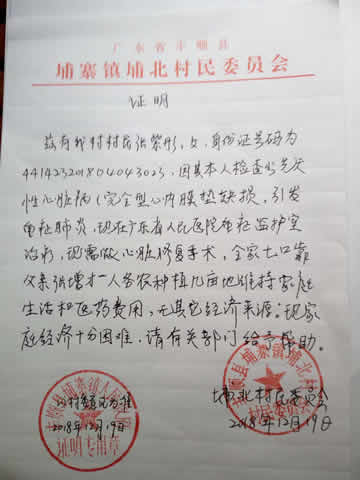 广东省丰顺县
埔寨镇埔北村民委员会
证明
兹有我村村民张紫彤，女，身份证号码为
441423201804043023，因其本人检查出先天
性心脏病（完全型心内膜垫缺损，引发
重症肺炎，现在广东省人民医院重症监护室
治疗，现需做心脏修复手术，全家七口靠
父亲张增才一人务农种植几亩地维持家庭
生活和医药费用，无其它经济来源。现家
庭经济十分困难，请有关部门给予帮助。
埔寨镇人民
情况为准
2018年12月19日
证明专用章
丰顺县埔寨镇埔北
村民委员会
埔北村民委员会
2018年12月19日